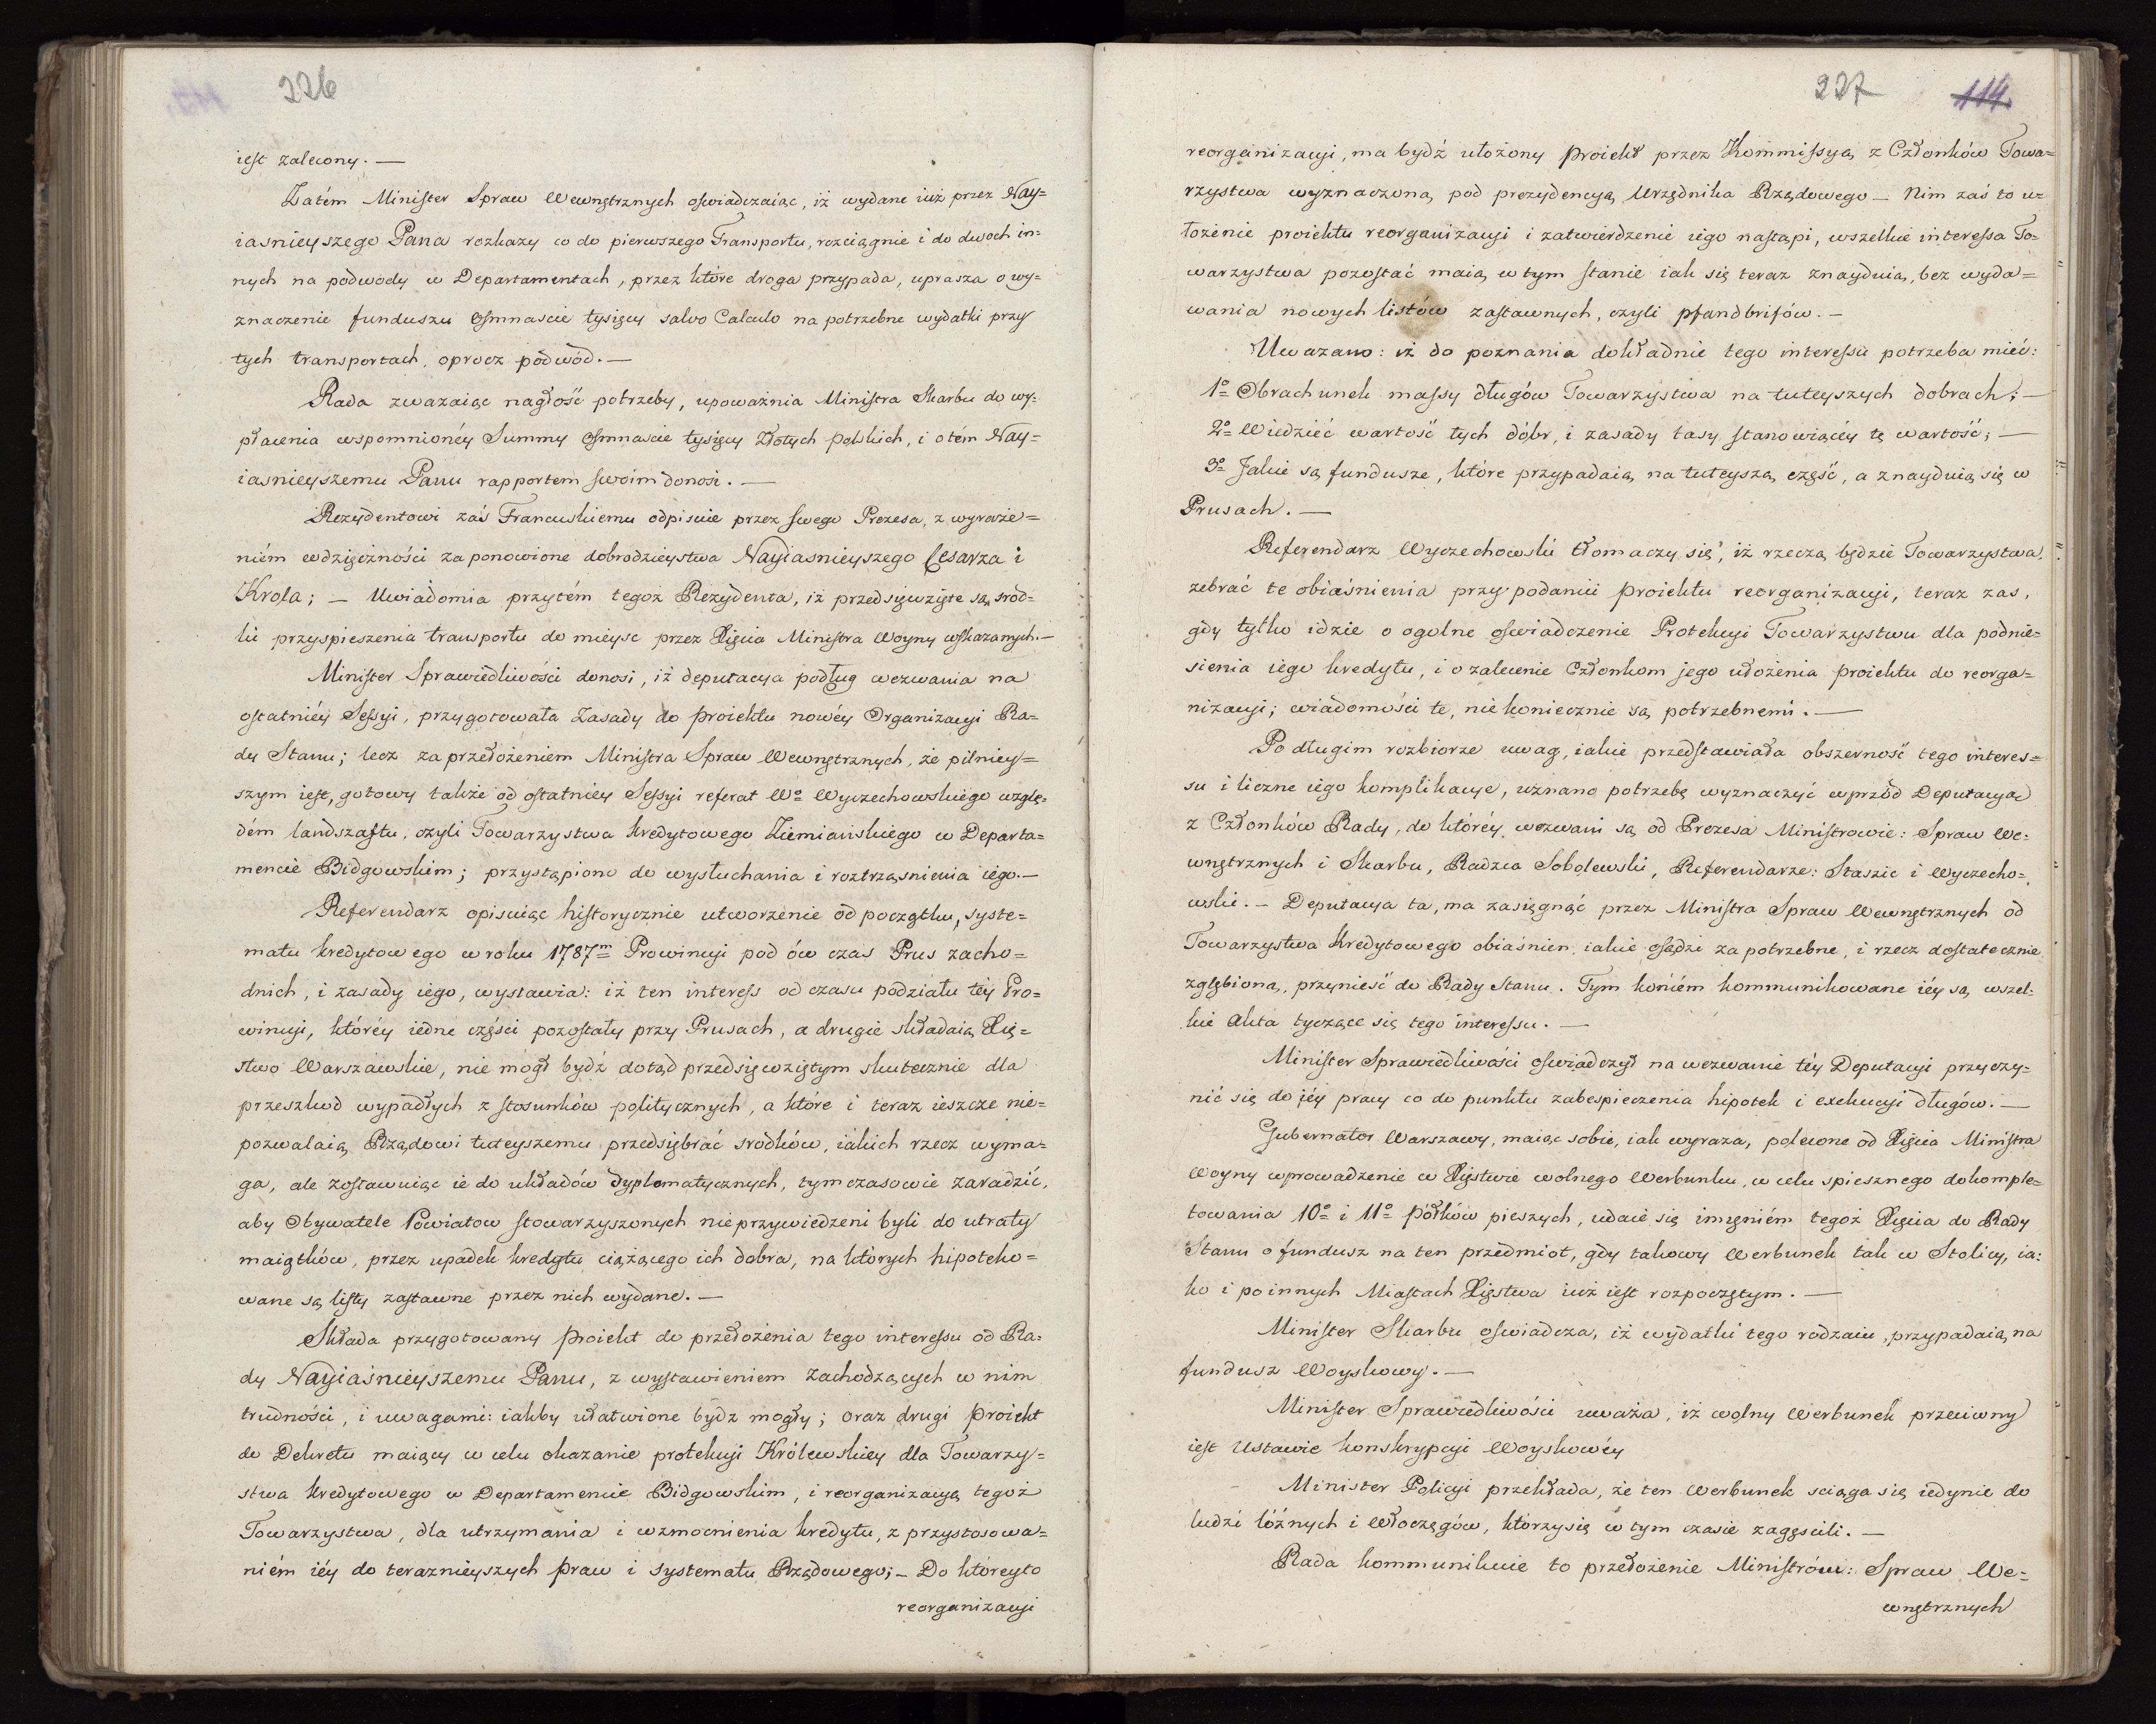 226
iest zalecony. —
Zatém Minister Spraw Wewnętrznych oswiadczaiąc, iż wydane iuż przez Nay=
iasnieyszego Pana rozkazy co do pierwszego Transportu, rozciągnie i do dwoch in=
nych na podwody w Departamentach, przez które droga przypada, uprasza o wy=
znaczenie funduszu osmnascie tysięcy salvo Calculo na potrzebne wydatki przy
tych transportach, oprocz podwód. —
Rada zwazaiąc nagłość potrzeby, upoważnia Ministra Skarbu do wy=
płacenia wspomnionéy Summy osmnascie tysięcy Złotych polskich, i o tém Nay=
iasnieyszemu Panu rapportem swoim donosi. —
Rezydentowi zaś Francuskiemu odpisuie przez swego Prezesa, z wyraże=
niém wdzięczności za ponowione dobrodzieystwa Nayiasnieyszego Cesarza i
Krola; — Uwiadomia przytém tegoż Rezydenta, iż przedsięwzięte są srod=
ki przyspieszenia transportu do mieysc przez Xięcia Ministra Woyny wskazanych. —
Minister Sprawiedliwości donosi, iż deputacya podług wezwania na
ostatniéy Sessyi, przygotowała Zasady do proiektu nowéy Organizacyi Ra=
dy Stanu; lecz za przełożeniem Ministra Spraw Wewnętrznych, że pilniey=
szym iest, gotowy także od ostatniey Sessyi referat Wo Wyczechowskiego wzglę=
dém landszaftu, czyli Towarzystwa kredytowego Ziemiańskiego w Departa=
mencie Bidgowskim; przystąpiono do wysłuchania i roztrząsnienia iego. —
Referendarz opisuiąc historycznie utworzenie od początku, syste=
matu kredytowego w roku 1787m Prowincyi pod ów czas Prus zacho=
dnich, i zasady iego, wystawia: iż ten interess od czasu podziału téy Pro=
wincyi, któréy iedne części pozostały przy Prusach, a drugie składaią Xię=
stwo Warszawskie, nie mógł bydź dotąd przedsięwziętym skutecznie dla
przeszkód wypadłych z stosunków politycznych, a które i teraz ieszcze nie=
pozwalaią Rządowi tuteyszemu przedsiębrać srodków, iakich rzecz wyma=
ga, ale zostawuiąc ie do układów dyplomatycznych, tymczasowie zaradzić,
aby Obywatele Powiatow stowarzyszonych nieprzywiedzeni byli do utraty
maiątków, przez upadek kredytu ciążącego ich dobra, na których hipoteko=
wane są listy zastawne przez nich wydane. —
Składa przygotowany proiekt do przełożenia tego interessu od Ra=
dy Nayiaśnieyszemu Panu, z wystawieniem zachodzących w nim
trudności, i uwagami: iakby ułatwione bydz mogły; oraz drugi proiekt
do Dekretu maiący w celu okazanie protekcyi Królewskiey dla Towarzy=
stwa kredytowego w Departamencie Bidgowskim, i reorganizacyą tegoż
Towarzystwa, dla utrzymania i wzmocnienia kredytu, z przystosowa=
niém iéy do teraznieyszych praw i systematu Rządowego; — Do któreyto
reorganizacyi
227 114.
reorganizacyi, ma bydź ułożony proiekt przez Kommissyą z Członków Towa=
rzystwa wyznaczoną pod prezydencyą Urzędnika Rządowego — Nim zaś to u=
łożenie proiektu reorganizacyi i zatwierdzenie iego nastąpi, wszelkie interessa To=
warzystwa pozostać maią w tym stanie iak się teraz znayduią, bez wyda=
wania nowych listów zastawnych, czyli pfandbrifów. —
Uwazano: iż do poznania dokładnie tego interessu potrzeba mieć:
1o Obrachunek massy długów Towarzystwa na tuteyszych dobrach; —
2o Widzieć wartość tych dóbr, i zasady taxy stanowiącéy tę wartość; —
3o Jakie są fundusze, które przypadaią na tuteyszą część, a znayduią się w
Prusach. —
Referendarz Wyczechowski tłomaczy się, iż rzeczą będzie Towarzystwa,
zebrać te obiaśnienia przy podaniu proiektu reorganizacyi, teraz zas,
gdy tylko idzie o ogolne oswiadczenie Protekcyi Towarzystwu dla podnie=
sienia iego kredytu, i o zalecenie Członkom jego ułożenia proiektu do reorga=
nizacyi; wiadomości te, nie koniecznie są potrzebnemi. —
Po długim rozbiorze uwag, iakie przedstawiała obszerność tego interes=
su i liczne iego komplikacye, uznano potrzebę wyznaczyć wprzód Deputacyą
z Członków Rady, do któréy wezwani są od Prezesa Ministrowie: Spraw We=
wnętrznych i Skarbu, Radzca Sobolewski, Referendarze: Staszic i Wyczecho=
wski. — Deputacya ta, ma zasięgnąć przez Ministra Spraw Wewnętrznych od
Towarzystwa Kredytowego obiaśnien, iakie osądzi za potrzebne, i rzecz dostatecznie
zgłębioną, przynieść do Rady Stanu. Tym końiém kommunikowane iéy są wszel=
kie Akta tyczące się tego interessu. —
Minister Sprawiedliwości oswiadczył na wezwanie téy Deputacyi przyczy=
nić się do jéy pracy co do punktu zabespieczenia hipotek i exekucyi długów. —
Gubernator Warszawy, maiąc sobie, iak wyraza, polecone od Xięcia Ministra
Woyny wprowadzenie w Xięstwie wolnego Werbunku, w celu spiesznego dokomple=
towania 10o i 11o półków pieszych, udaie się imieniém tegoż Xięcia do Rady
Stanu o fundusz na ten przedmiot, gdy takowy Werbunek tak w Stolicy, ia=
ko i po innych Miastach Xięstwa iuż iest rozpoczętym. —
Minister Skarbu oswiadcza, iż wydatki tego rodzaiu, przypadaią na
fundusz Woyskowy. —
Minister Sprawiedliwości uważa, iż wolny Werbunek przeciwny
iest Ustawie konskrypcyi Woyskowéy
Minister Policyi przekłada, że ten Werbunek sciąga się iedynie do
ludzi lóźnych i Włoczęgów, którzy się w tym czasie zagęscili. —
Rada kommunikuie to przełożenie Ministrów: Spraw We=
wnętrznych